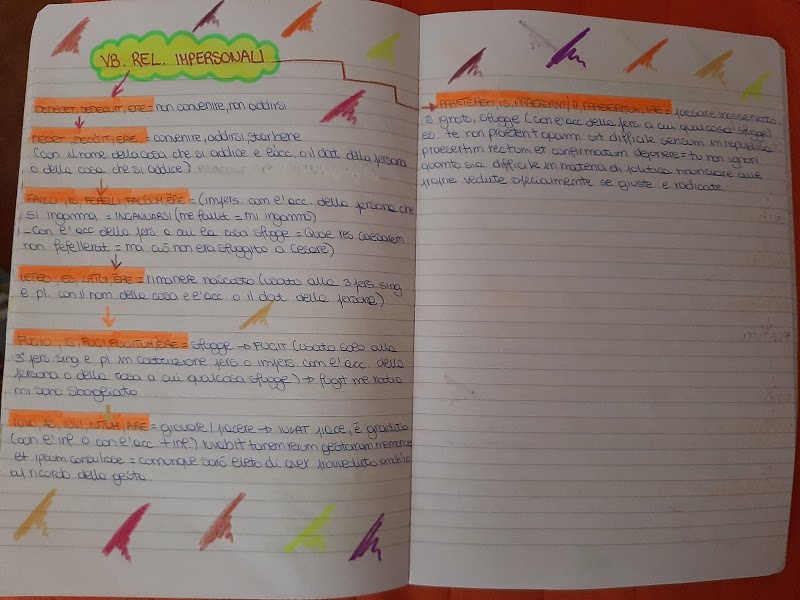 VB. REL. IMPERSONALI
DEDECET, DEDECUIT, ERE = non convenire, non addirsi
DECET, DECUIT, ERE = convenire, addirsi, star bene
(con il nome della cosa che si addice e l'acc. o il dat della persona
o della cosa che si addice)
FALLO, IS, FEFELLI, FALSUM, ERE = (impers. con l'acc. della persona che
si inganna = INGANNARSI (me fallit = mi inganno)
- con l'acc della pers a cui la cosa sfugge = Quae res caesarem
non fefellerat = ma ciò non era sfuggito a Cesare)
LATEO, ES, LATUI, ERE = rimanere nascosto (usato alla 3 pers. sing
e pl. con il nom della cosa e l'acc. o il dat della persona)
FUGIO, IS, FUGI, FUGITUM, ERE = sfugge → FUGIT (usato solo alla
3ª pers. sing e pl in costruzione pers o impers. con l'acc. della
persona o della cosa a cui qualcosa sfugge) → fugit me ratio
mi sono sbagliato
IUVO, AS, IUVI, IUTUM, ARE = giovare / piacere → IUVAT piace, è gradito
(con l'inf o con l'acc + inf.) iuvabit tamen rerum gestarum memoriae
et ipsum consuluisse = comunque sarò lieto di aver provveduto anch'io
al ricordo della gesta
PRAETEREO, IS, PRAETERIVI / II, PRAETERITUM, IRE = passare inosservato,
è ignoto, sfugge (con l'acc della pers a cui qualcosa sfugge)
es. te non praeterit quam sit difficile sensum in republica
praesertim rectum et confirmatum deponere = tu non ignori
quanto sia difficile in materia di politica rinunciare alle
proprie vedute specialmente se giuste e radicate